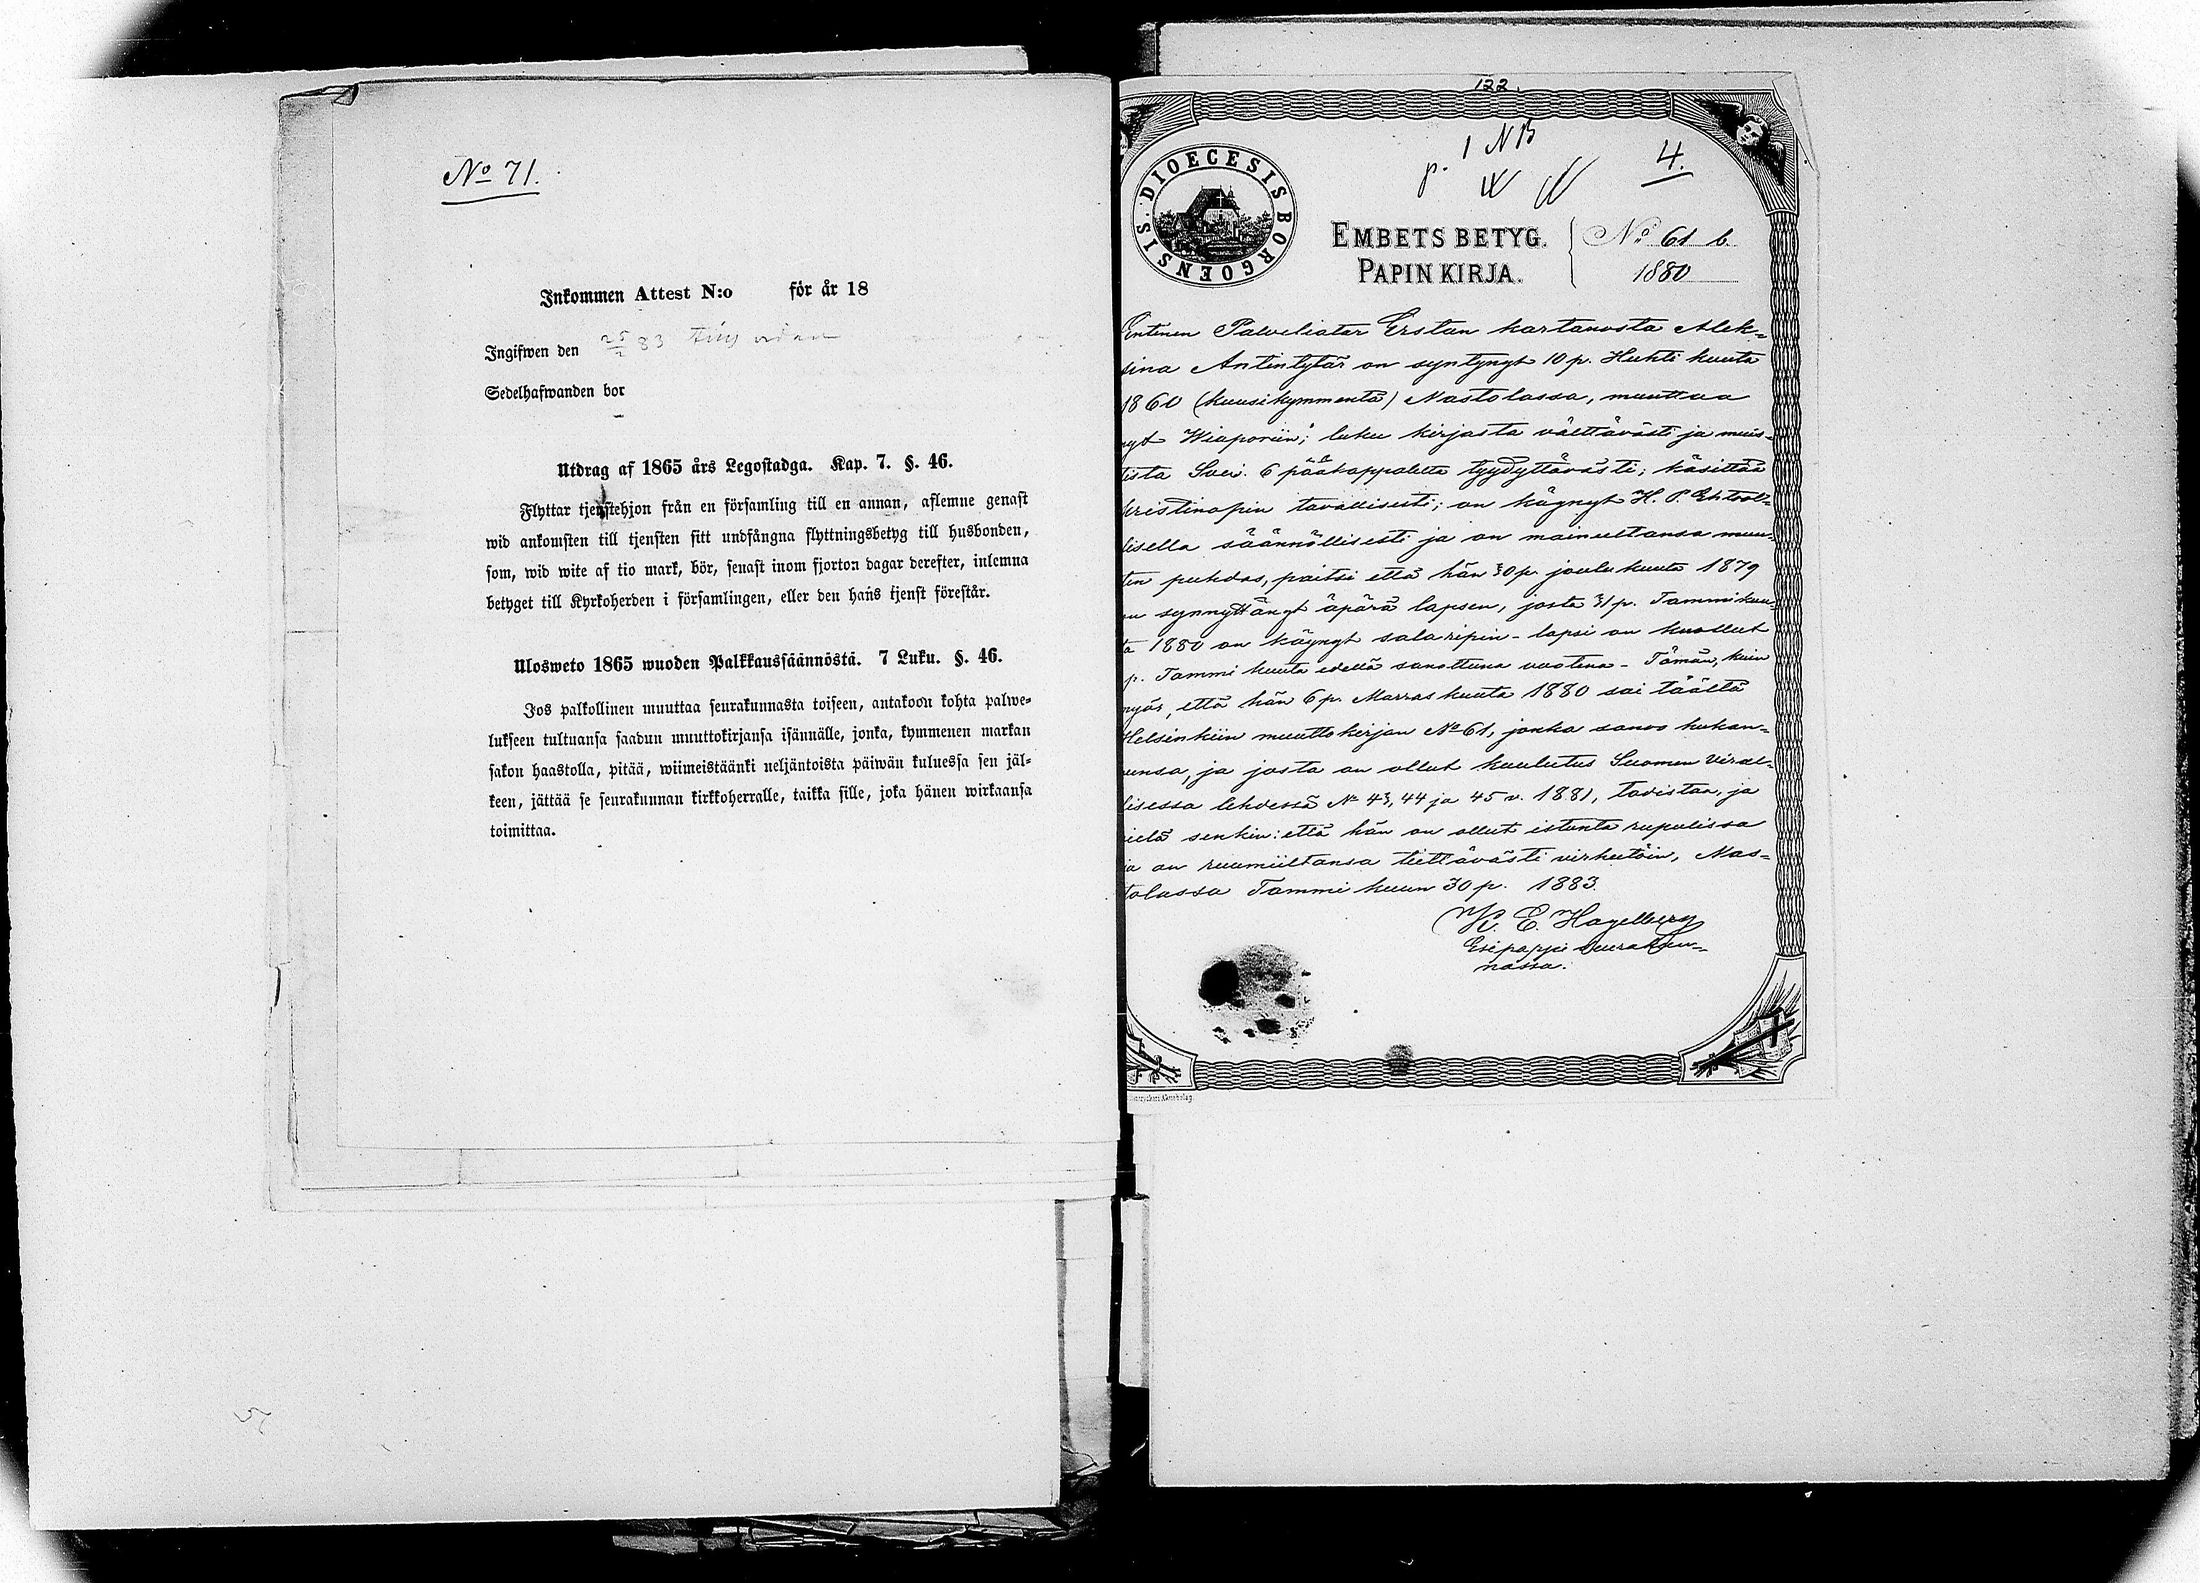 No 71.
Inkommen Attest N:o för år 18
Ingifwen den 25/2 83
Sedelhafwanden bor
Utdrag af 1865 års Legostadga. Kap. 7. §. 46.
Flyttar tjenstehjon från en församling till en annan, aflemne genast
wid ankomsten till tjensten sitt undfångna flyttningsbetyg till husbonden,
som, wid wite af tio mark, bör, senast inom fjorton dagar derefter, inlemna
betyget till Kyrkoherden i församlingen, eller den hans tjenst förestår.
Ulosweto 1865 wuoden Palkkaussäännöstä. 7 Luku. §. 46.
Jos palkollinen muuttaa seurakunnasta toiseen, antakoon kohta palwe-
lukseen tultuansa saadun muuttokirjansa isännälle, jonka, kymmenen markan
sakon haastolla, pitää, wiimeistäänki neljäntoista päiwän kuluessa sen jäl-
keen, jättää se seurakunnan kirkkoherralle, taikka sille, joka hänen wirkaansa
toimittaa.
122.
1 NB
p.
4.
DIOECESIS BORGOENSIS.
EMBETS BETYG.
PAPIN KIRJA.
No: 61 b.
1880
Entinen Palveliatar Erstan kartanosta Alek-
sina Antintytär on syntynyt 10 p. Huhti kuuta
1860 (kuusikymmentä) Nastolassa, muuttaa
nyt Wiaporiin; lukee kirjasta välttävästi ja muis-
tista 6 pääkappaletta tyydyttävästi; käsittää
kristinopin tavallisesti; on käynyt H. P. Ehtool-
lisella säännöllisesti ja on maineeltansa muu-
ten puhdas, paitsi että hän 30 p. joulukuuta 1879
on synnyttänyt äpärä lapsen, josta 31 p. Tammikuu-
ta 1880 on käynyt salaripin - lapsi on kuollut
p. Tammi kuuta edellä sanottuna vuotena - Tämän, kuin
myös, että hän 6 p. Marraskuuta 1880 sai täältä
Helsinkiin muuttokirjan No 61, jonka sanoo hukan-
neensa, ja josta on ollut kuulutus Suomen Viral-
lisessa lehdessä No 43, 44 ja 45 v. 1881, todistaa, ja
vielä senkin: että hän on ollut istuttu rupulissa
ja on ruumiiltansa tiettävästi virheetöin, Nas-
tolassa Tammi kuun 30 p. 1883.
K. E. Hagelberg
Esipappi seurakun-
nassa.